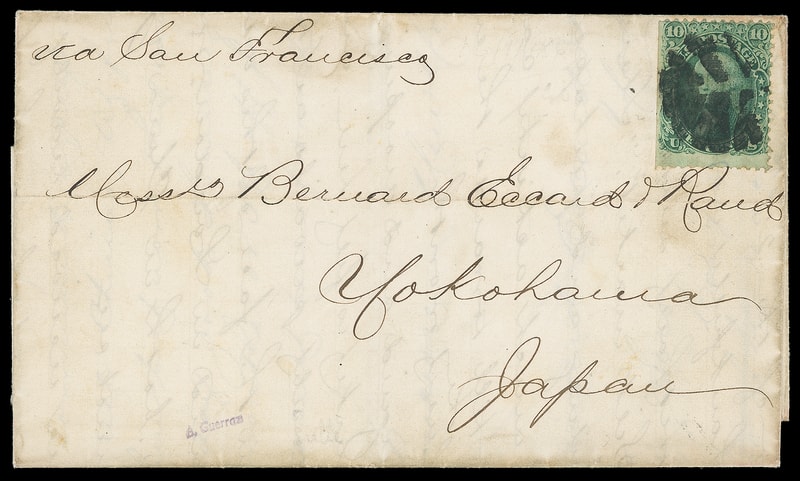 via San Francisco
10 10
U.S. POSTAGE
Messrs Bernard Eccard & Raud
Yokohama
Japan